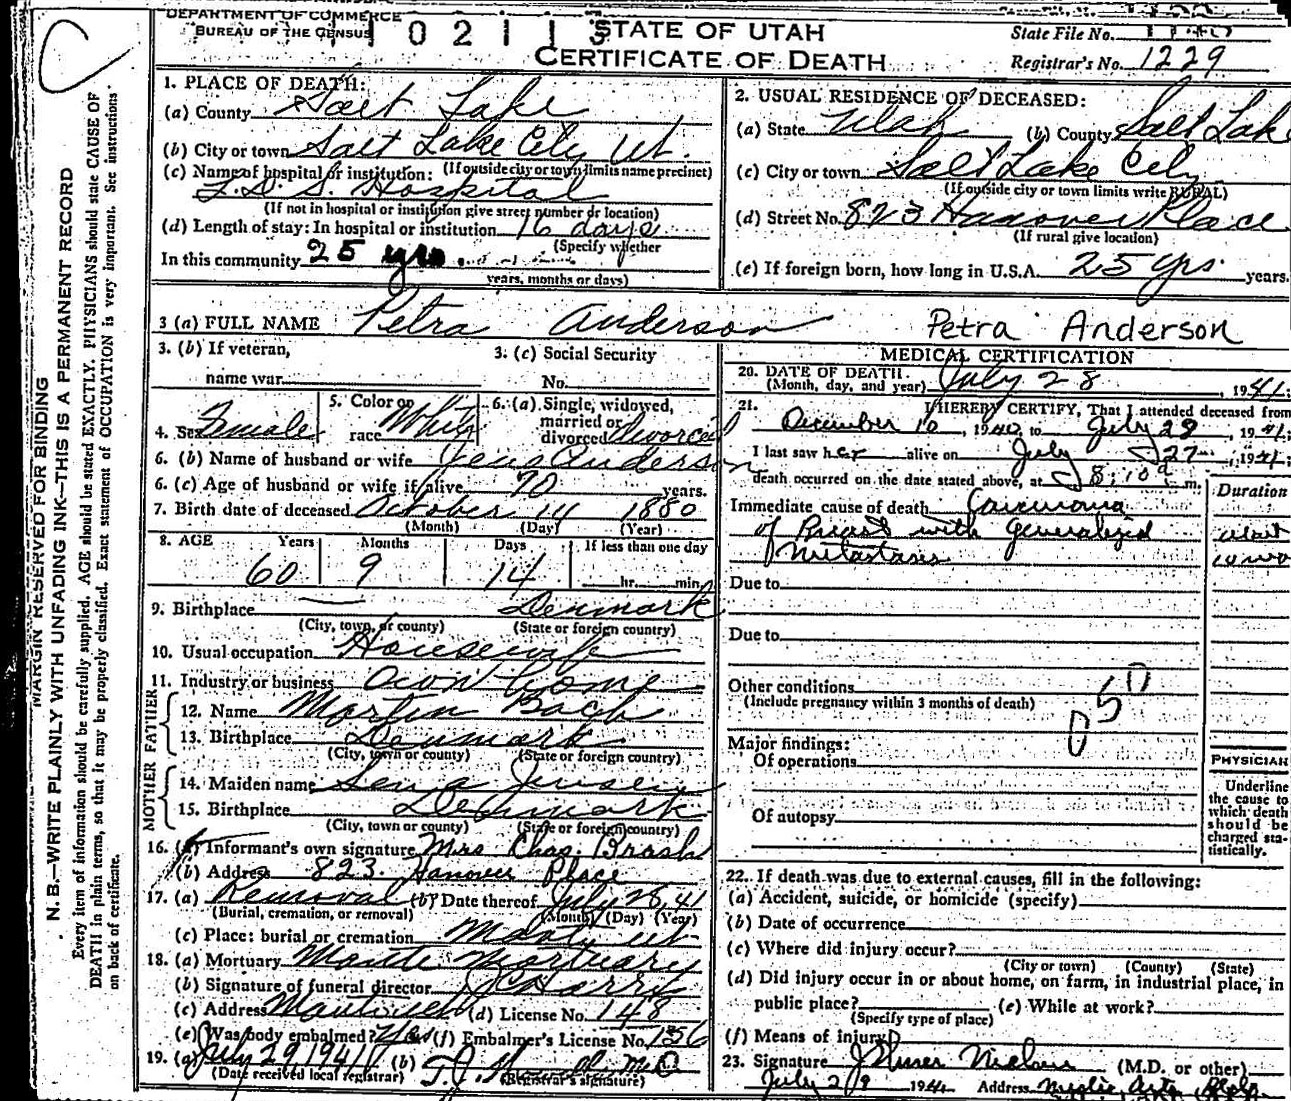 DEPARTMENT OF COMMERCE
BUREAU OF THE CENSUS
STATE OF UTAH
CERTIFICATE OF DEATH
State File No.
Registrar's No. 1229
MARGIN RESERVED FOR BINDING
N. B.—WRITE PLAINLY WITH UNFADING INK—THIS IS A PERMANENT RECORD
Every item of information should be carefully supplied. AGE should be stated EXACTLY. PHYSICIANS should state CAUSE OF
DEATH in plain terms, so that it may be properly classified. Exact statement of OCCUPATION is very important. See instructions
on back of certificate.
1. PLACE OF DEATH:
(a) County Salt Lake
(b) City or town Salt Lake City Ut.
(If outside city or town limits name precinct)
(c) Name of hospital or institution:
L.D.S. Hospital
(If not in hospital or institution give street number or location)
(d) Length of stay: In hospital or institution 16 days
(Specify whether
In this community 25 yrs.
years, months or days)
2. USUAL RESIDENCE OF DECEASED:
(a) State Utah (b) County Salt Lake
(c) City or town Salt Lake City
(If outside city or town limits write RURAL)
(d) Street No. 823 Hanover Place
(If rural give location)
(e) If foreign born, how long in U.S.A. 25 yrs. years.
3 (a) FULL NAME Petra Anderson Petra Anderson
3. (b) If veteran,
name war
3. (c) Social Security
No.
4. Sex Female
5. Color or
race White
6. (a) Single, widowed,
married or
divorced Divorced
6. (b) Name of husband or wife Jens Anderson
6. (c) Age of husband or wife if alive 70 years.
7. Birth date of deceased October 14 1880
(Month) (Day) (Year)
8. AGE Years Months Days If less than one day
60 9 14 hr. min.
9. Birthplace Denmark
(City, town, or county) (State or foreign country)
10. Usual occupation Housewife
11. Industry or business Own Home
FATHER
12. Name Martin Bach
13. Birthplace Denmark
(City, town or county) (State or foreign country)
MOTHER
14. Maiden name Sena Jensen
15. Birthplace Denmark
(City, town or county) (State or foreign country)
16. (a) Informant's own signature Mrs Chas. Brash
(b) Address 823 Hanover Place
17. (a) Removal (b) Date thereof July 28, 41
(Burial, cremation, or removal) (Month) (Day) (Year)
(c) Place: burial or cremation Manti Ut
18. (a) Mortuary Manti Mortuary
(b) Signature of funeral director
(c) Address Manti Utah (d) License No. 148
(e) Was body embalmed? Yes (f) Embalmer's License No. 156
19. (a) July 29 1941 (b)
(Date received local registrar) (Registrar's signature)
MEDICAL CERTIFICATION
20. DATE OF DEATH
(Month, day, and year) July 28, 1941;
21. I HEREBY CERTIFY, That I attended deceased from
December 10, 1940, to July 28, 1941;
I last saw her alive on July 27, 1941;
death occurred on the date stated above, at 8:10 a m.
Duration
Immediate cause of death Carcinoma
of Breast with generalized
Metastasis
10 mo
Due to
Due to
Other conditions
(Include pregnancy within 3 months of death)
050
Major findings:
Of operations
Of autopsy
PHYSICIAN
Underline
the cause to
which death
should be
charged sta-
tistically.
22. If death was due to external causes, fill in the following:
(a) Accident, suicide, or homicide (specify)
(b) Date of occurrence
(c) Where did injury occur?
(City or town) (County) (State)
(d) Did injury occur in or about home, on farm, in industrial place, in
public place? (e) While at work?
(Specify type of place)
(f) Means of injury
23. Signature (M.D. or other)
July 29 1941 Address